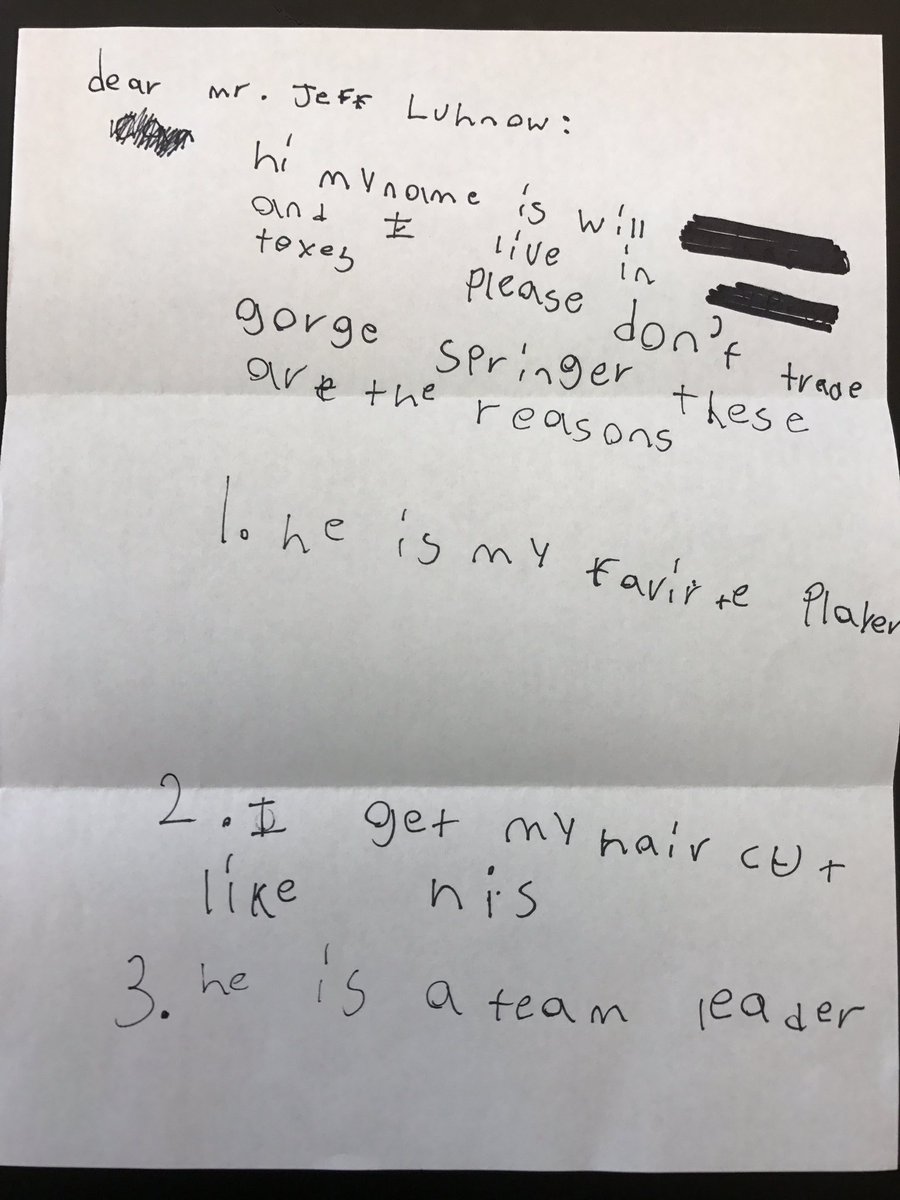 dear mr. Jeff Luhnow:
hi my name is will
and I live in
texes please don't trade
gorge springer these
are the reasons
1. he is my favirte player
2. I get my hair cut
like his
3. he is a team leader